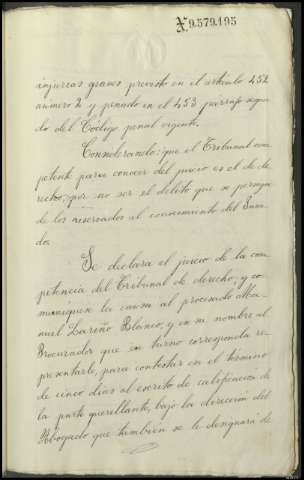 X9.579.195
injurias graves previsto en el artículo 452
número 2 y penado en el 453 párrafo segun-
do del Código penal vigente.
Considerando: que el Tribunal com-
petente para conocer del juicio es el de de-
recho, por no ser el delito que se persigue
de los reservados al conocimiento del Jura-
do.
Se declara el juicio de la com-
petencia del Tribunal de derecho, y co-
muníquese la causa al procesado Ma-
nuel Lareño Blanco, y en su nombre al
Procurador que en turno corresponda re-
presentarle, para contestar en el término
de cinco días al escrito de calificación de
la parte querellante, bajo la dirección del
Abogado que tambien se le designará de